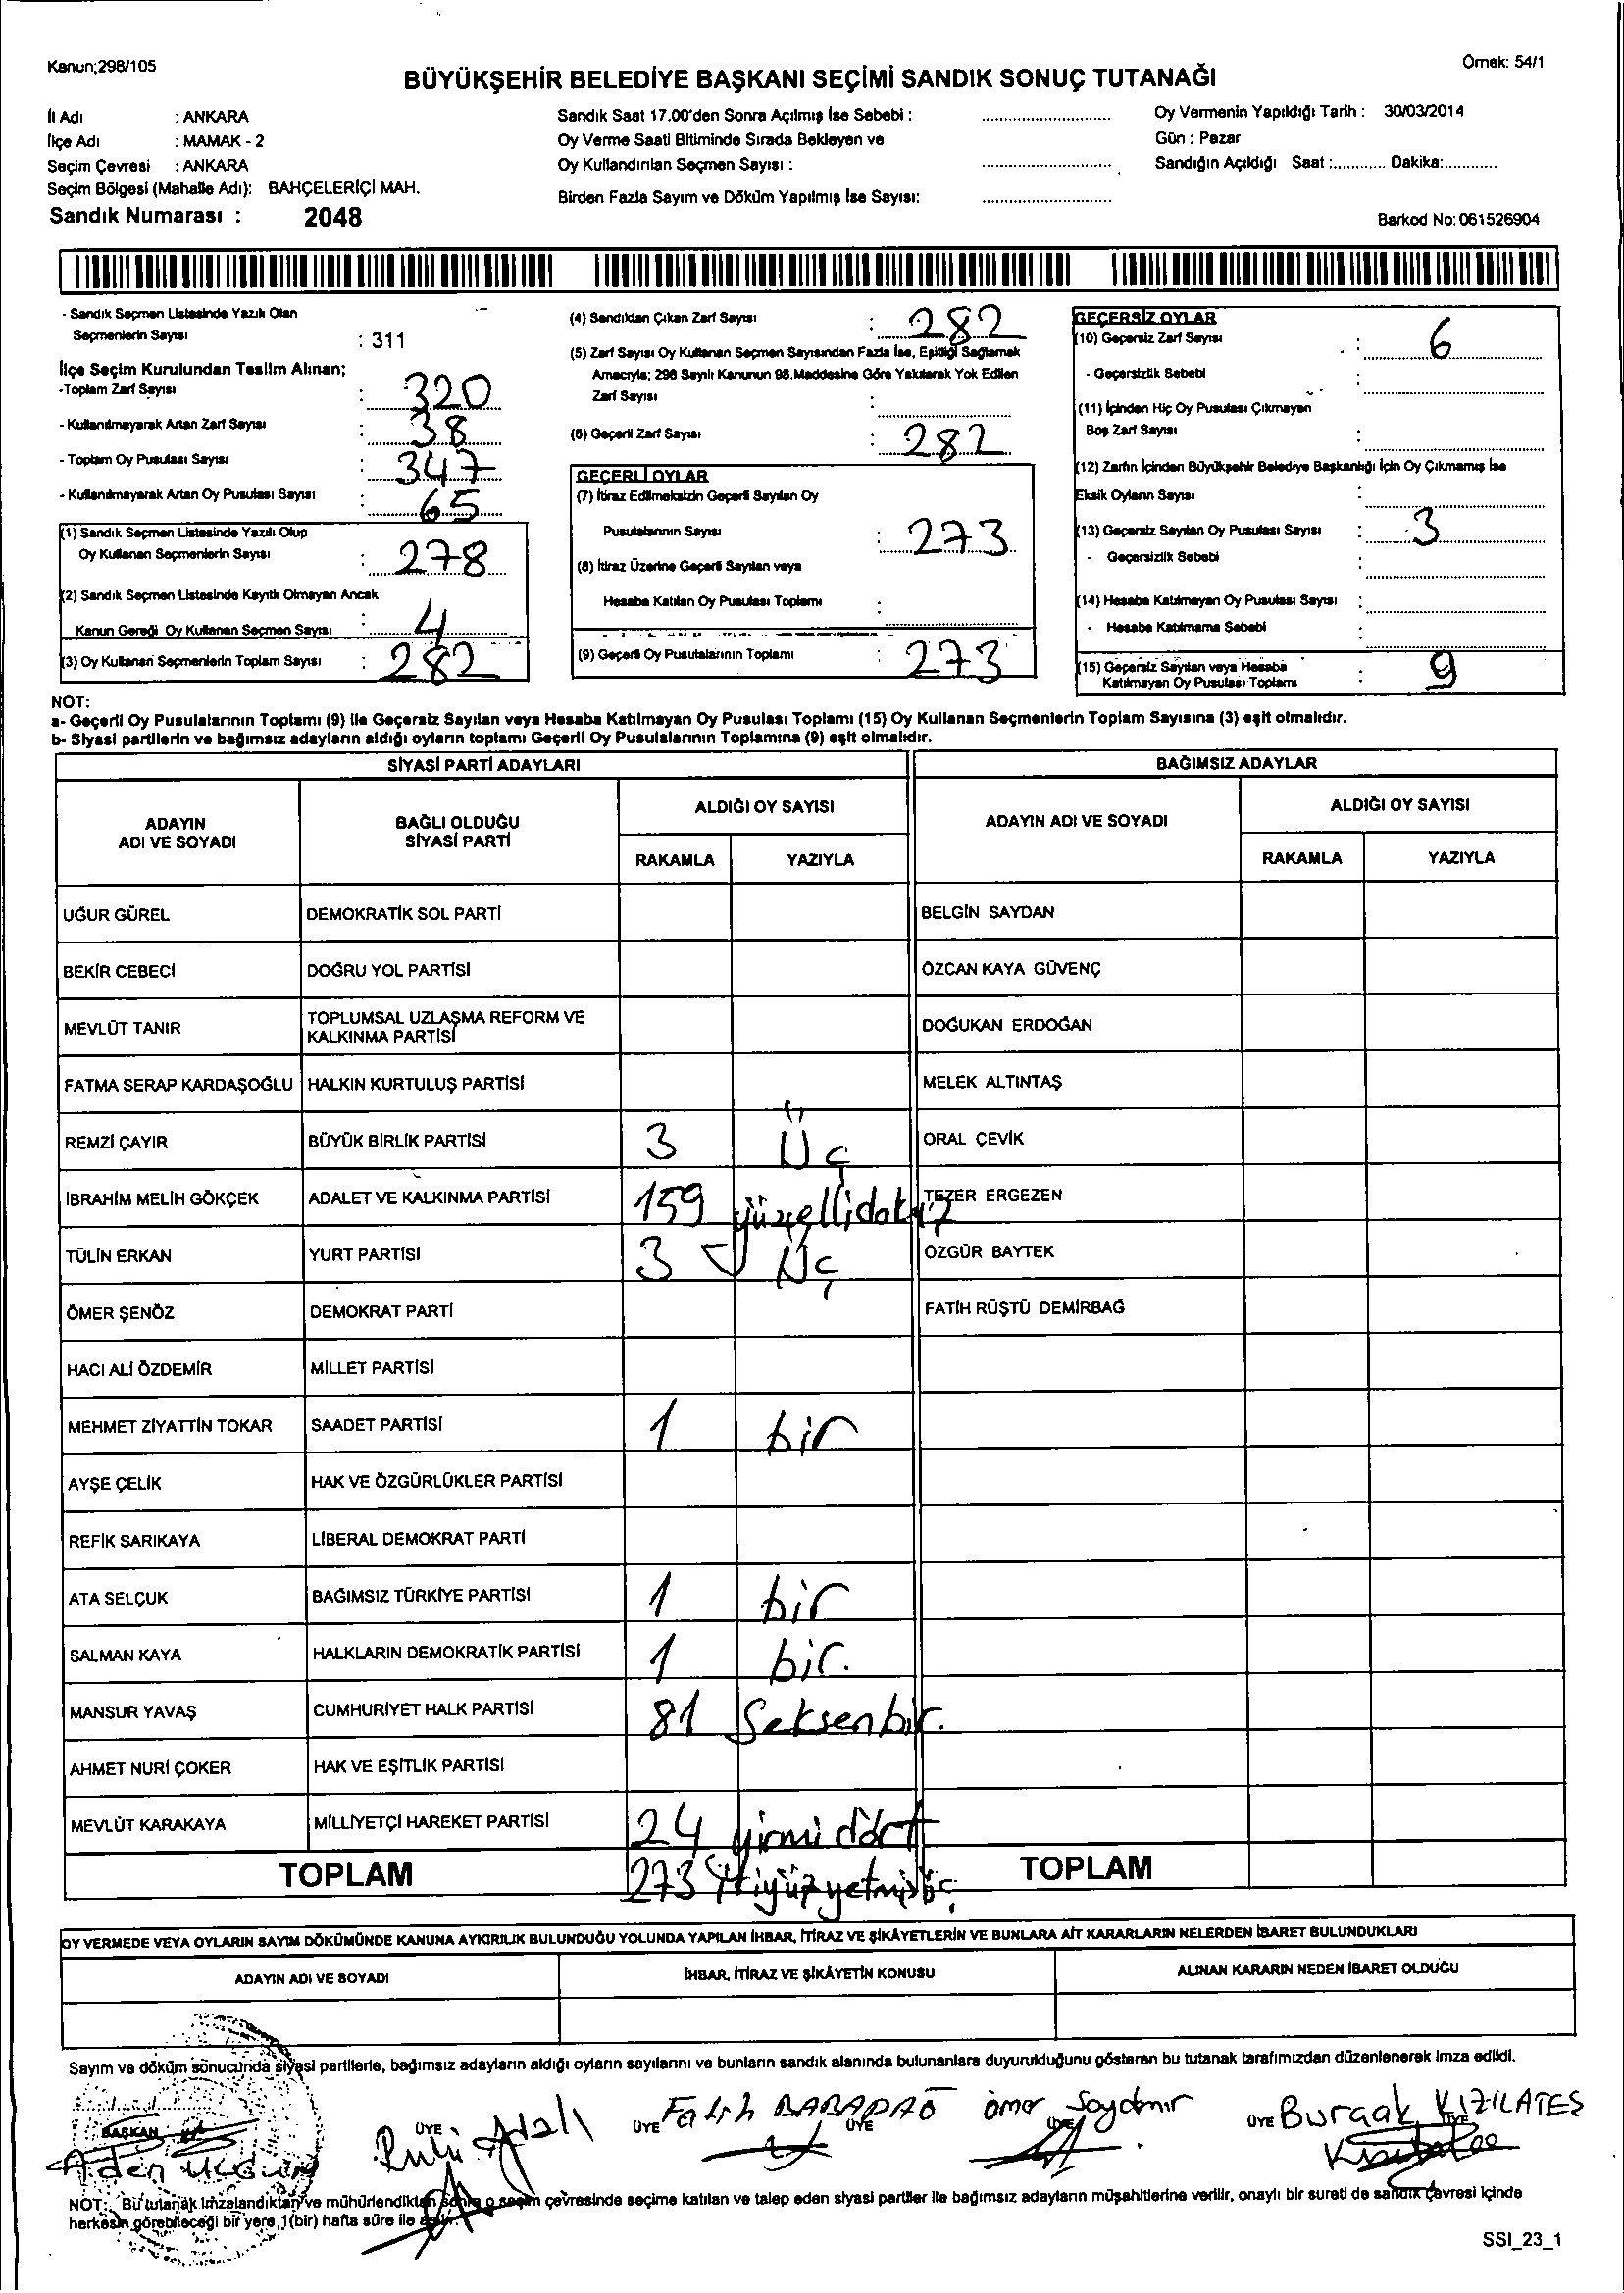 Kanun;298/105
Örnek: 54/1
BÜYÜKŞEHİR BELEDİYE BAŞKANI SEÇİMİ SANDIK SONUÇ TUTANAĞI
İl Adı : ANKARA
İlçe Adı : MAMAK - 2
Seçim Çevresi : ANKARA
Seçim Bölgesi (Mahalle Adı): BAHÇELERİÇİ MAH.
Sandık Numarası : 2048
Sandık Saat 17.00'den Sonra Açılmış İse Sebebi :
Oy Verme Saati Bitiminde Sırada Bekleyen ve
Oy Kullandırılan Seçmen Sayısı :
Birden Fazla Sayım ve Döküm Yapılmış İse Sayısı:
Oy Vermenin Yapıldığı Tarih : 30/03/2014
Gün : Pazar
Sandığın Açıldığı Saat :............. Dakika:............
Barkod No: 061526904
- Sandık Seçmen Listesinde Yazılı Olan
Seçmenlerin Sayısı : 311
İlçe Seçim Kurulundan Teslim Alınan;
-Toplam Zarf Sayısı : 320
- Kullanılmayarak Artan Zarf Sayısı : 38
- Toplam Oy Pusulası Sayısı : 347
- Kullanılmayarak Artan Oy Pusulası Sayısı : 65
(1) Sandık Seçmen Listesinde Yazılı Olup
Oy Kullanan Seçmenlerin Sayısı : 278
(2) Sandık Seçmen Listesinde Kayıtlı Olmayan Ancak
Kanun Gereği Oy Kullanan Seçmen Sayısı : 4
(3) Oy Kullanan Seçmenlerin Toplam Sayısı : 282
(4) Sandıktan Çıkan Zarf Sayısı : 282
(5) Zarf Sayısı Oy Kullanan Seçmen Sayısından Fazla İse, Eşitliği Sağlamak
Amacıyla; 298 Sayılı Kanunun 98.Maddesine Göre Yakılarak Yok Edilen
Zarf Sayısı :
(6) Geçerli Zarf Sayısı : 282
GEÇERLİ OYLAR
(7) İtiraz Edilmeksizin Geçerli Sayılan Oy
Pusulalarının Sayısı : 273
(8) İtiraz Üzerine Geçerli Sayılan veya
Hesaba Katılan Oy Pusulası Toplamı :
(9) Geçerli Oy Pusulalarının Toplamı : 273
GEÇERSİZ OYLAR
(10) Geçersiz Zarf Sayısı : 6
- Geçersizlik Sebebi :
(11) İçinden Hiç Oy Pusulası Çıkmayan
Boş Zarf Sayısı :
(12) Zarfın İçinden Büyükşehir Belediye Başkanlığı İçin Oy Çıkmamış İse
Eksik Oyların Sayısı :
(13) Geçersiz Sayılan Oy Pusulası Sayısı : 3
- Geçersizlik Sebebi :
(14) Hesaba Katılmayan Oy Pusulası Sayısı :
- Hesaba Katılmama Sebebi :
(15) Geçersiz Sayılan veya Hesaba
Katılmayan Oy Pusulası Toplamı : 9
NOT:
a- Geçerli Oy Pusulalarının Toplamı (9) ile Geçersiz Sayılan veya Hesaba Katılmayan Oy Pusulası Toplamı (15) Oy Kullanan Seçmenlerin Toplam Sayısına (3) eşit olmalıdır.
b- Siyasi partilerin ve bağımsız adayların aldığı oyların toplamı Geçerli Oy Pusulalarının Toplamına (9) eşit olmalıdır.
SİYASİ PARTİ ADAYLARI
BAĞIMSIZ ADAYLAR
ADAYIN
ADI VE SOYADI
BAĞLI OLDUĞU
SİYASİ PARTİ
ALDIĞI OY SAYISI
RAKAMLA YAZIYLA
ADAYIN ADI VE SOYADI
ALDIĞI OY SAYISI
RAKAMLA YAZIYLA
UĞUR GÜREL DEMOKRATİK SOL PARTİ BELGİN SAYDAN
BEKİR CEBECİ DOĞRU YOL PARTİSİ ÖZCAN KAYA GÜVENÇ
MEVLÜT TANIR TOPLUMSAL UZLAŞMA REFORM VE
KALKINMA PARTİSİ DOĞUKAN ERDOĞAN
FATMA SERAP KARDAŞOĞLU HALKIN KURTULUŞ PARTİSİ MELEK ALTINTAŞ
REMZİ ÇAYIR BÜYÜK BİRLİK PARTİSİ 3 Üç ORAL ÇEVİK
İBRAHİM MELİH GÖKÇEK ADALET VE KALKINMA PARTİSİ 159 yüzellidokuz TEZER ERGEZEN
TÜLİN ERKAN YURT PARTİSİ 3 Üç ÖZGÜR BAYTEK
ÖMER ŞENÖZ DEMOKRAT PARTİ FATİH RÜŞTÜ DEMİRBAĞ
HACI ALİ ÖZDEMİR MİLLET PARTİSİ
MEHMET ZİYATTİN TOKAR SAADET PARTİSİ 1 bir
AYŞE ÇELİK HAK VE ÖZGÜRLÜKLER PARTİSİ
REFİK SARIKAYA LİBERAL DEMOKRAT PARTİ
ATA SELÇUK BAĞIMSIZ TÜRKİYE PARTİSİ 1 bir
SALMAN KAYA HALKLARIN DEMOKRATİK PARTİSİ 1 bir.
MANSUR YAVAŞ CUMHURİYET HALK PARTİSİ 81 Seksenbir.
AHMET NURİ ÇOKER HAK VE EŞİTLİK PARTİSİ
MEVLÜT KARAKAYA MİLLİYETÇİ HAREKET PARTİSİ 24 yirmi dört
TOPLAM 273 ikiyüzyetmişüç TOPLAM
OY VERMEDE VEYA OYLARIN SAYIM DÖKÜMÜNDE KANUNA AYKIRILIK BULUNDUĞU YOLUNDA YAPILAN İHBAR, İTİRAZ VE ŞİKÂYETLERİN VE BUNLARA AİT KARARLARIN NELERDEN İBARET BULUNDUKLARI
ADAYIN ADI VE SOYADI İHBAR, İTİRAZ VE ŞİKÂYETİN KONUSU ALINAN KARARIN NEDEN İBARET OLDUĞU
Sayım ve döküm sonucunda siyasi partilerle, bağımsız adayların aldığı oyların sayılarını ve bunların sandık alanında bulunanlara duyurulduğunu gösteren bu tutanak tarafımızdan düzenlenerek imza edildi.
BAŞKAN ÜYE ÜYE Fatih ÜYE ömer ÜYE ÜYE Burçak KIZILATEŞ ÜYE
NOT: Bu tutanak imzalandıktan ve mühürlendikten sonra o seçim çevresinde seçime katılan ve talep eden siyasi partiler ile bağımsız adayların müşahitlerine verilir, onaylı bir sureti de sandık çevresi içinde
herkesin görebileceği bir yere 1(bir) hafta süre ile asılır.
SSI_23_1